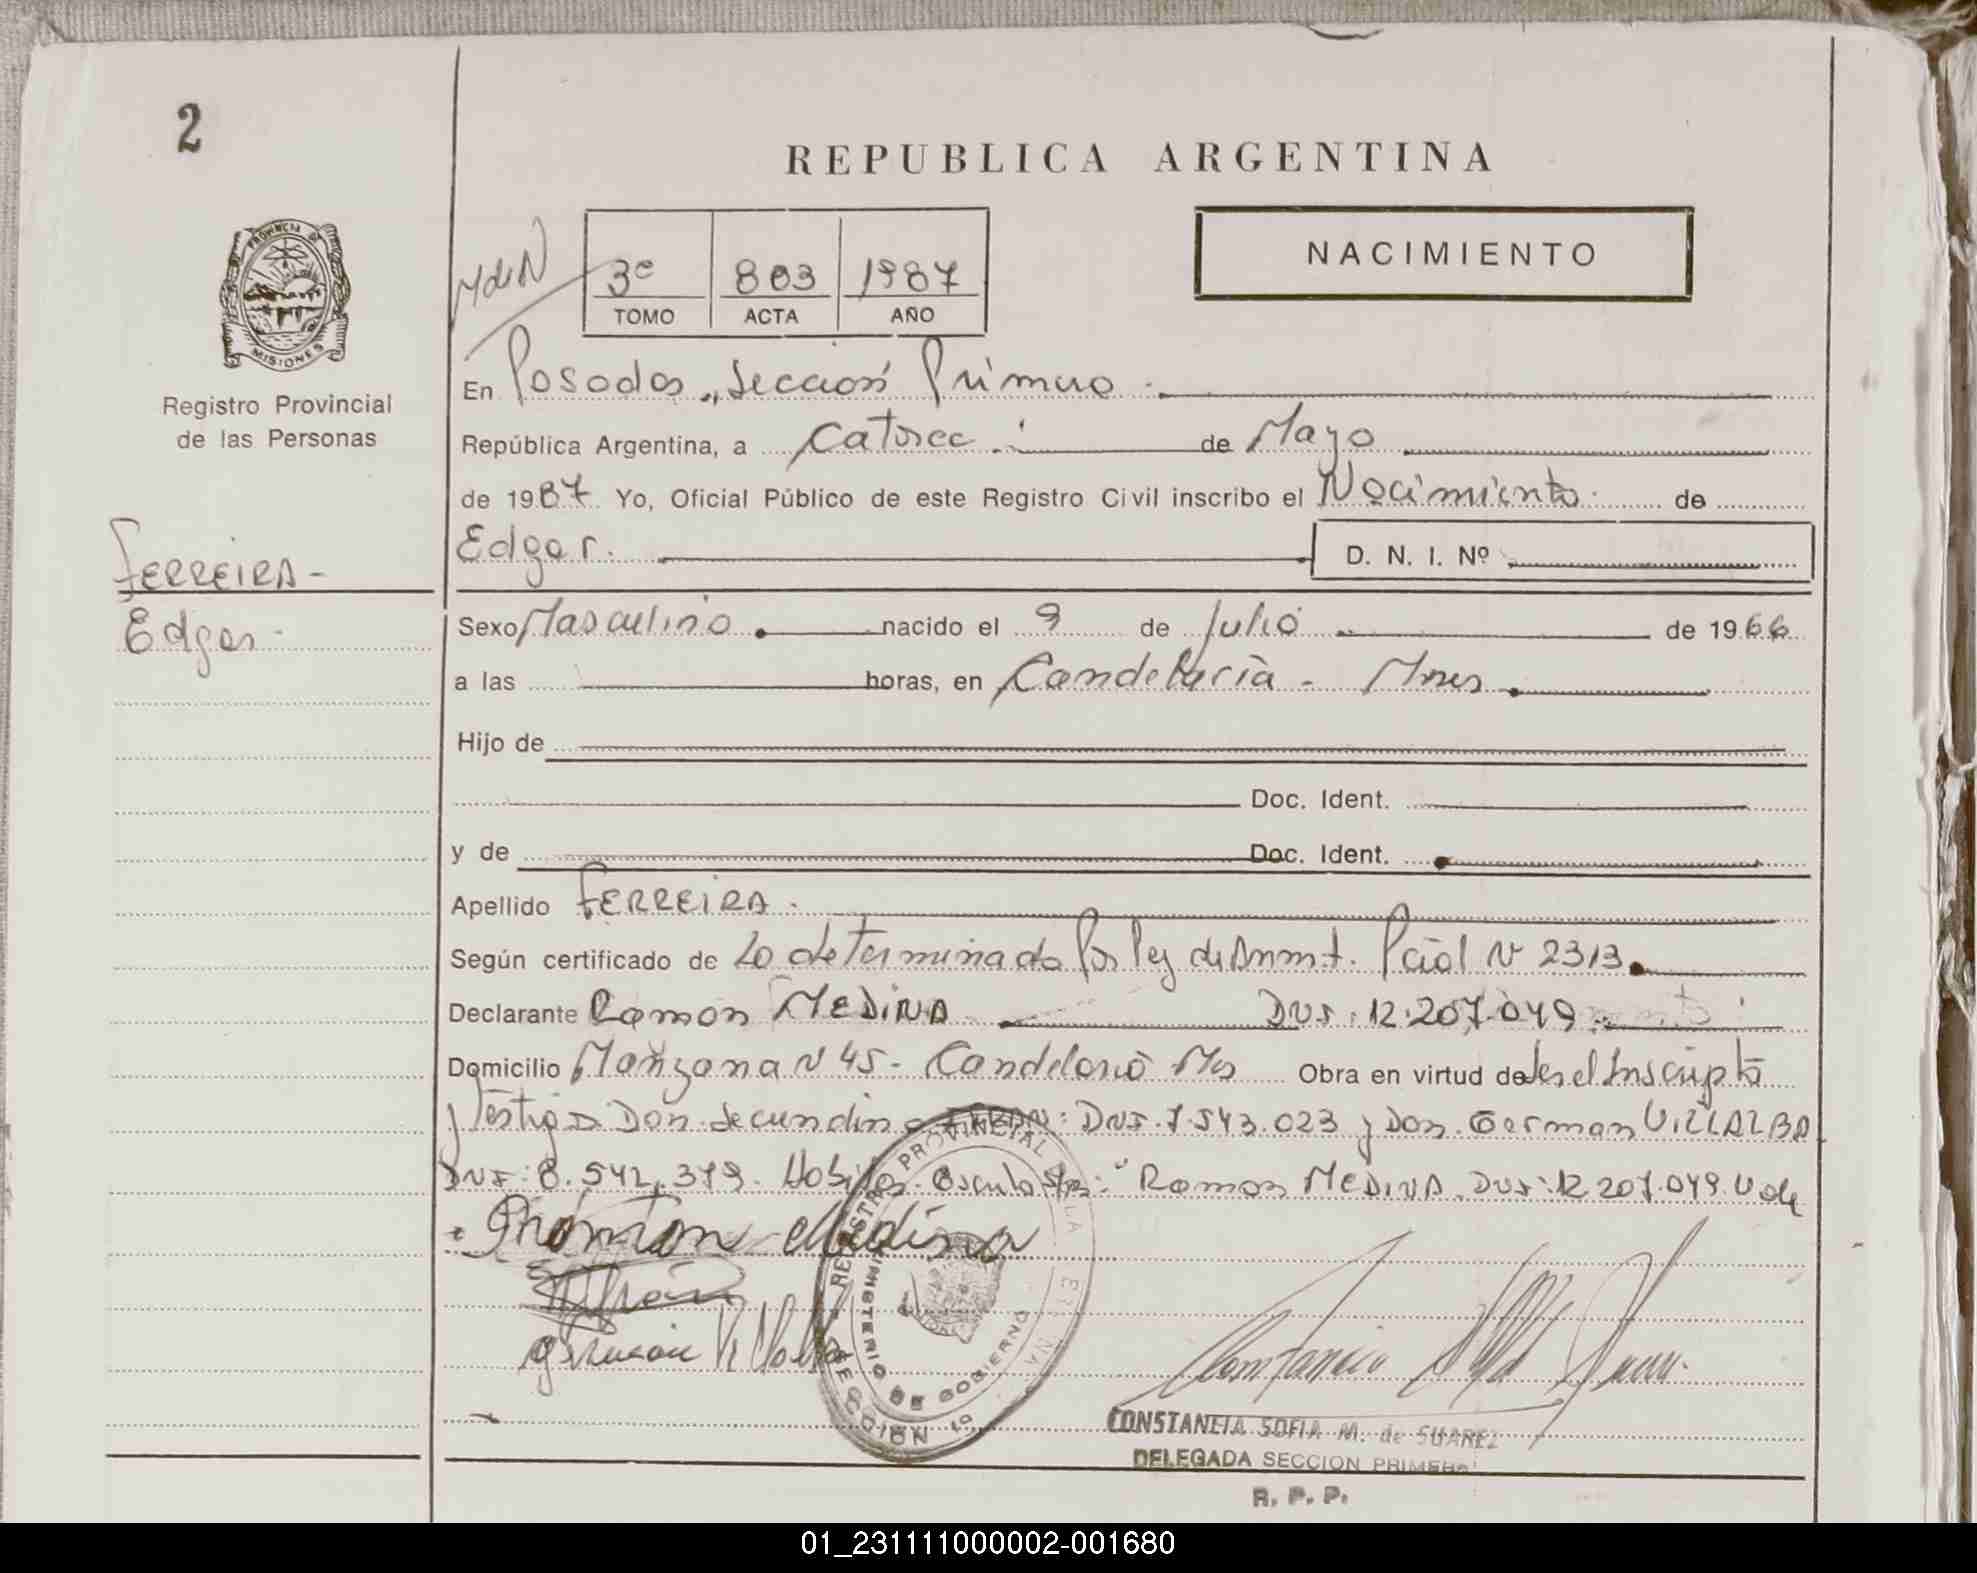 2
REPUBLICA ARGENTINA
NACIMIENTO
3º 803 1987
TOMO ACTA AÑO
PROVINCIA DE
MISIONES
Registro Provincial
de las Personas
En Posadas, Sección Primera.
República Argentina, a Catorce de Mayo
de 1987 Yo, Oficial Público de este Registro Civil inscribo el Nacimiento de
Edgar.
D. N. I. Nº
FERREIRA-
Edgar-
Sexo Masculino nacido el 9 de Julio de 1966
a las horas, en Candelaria - Mnes
Hijo de
Doc. Ident.
y de Doc. Ident.
Apellido FERREIRA.
Según certificado de Lo determinado Por Ley de Amnt. Pcial Nº 2313
Declarante Ramón MEDINA DNI. 12.207.049
Domicilio Manzana Nº 45- Candelaria Mns Obra en virtud de
y Testigos Don Secundino DNI. 7.543.023 y Don German VILLALBA
DNI: 8.542.379. "Ramon MEDINA. DNI: 12 207.049. Vale
Ramon Medina
German Villalba
REGISTRO PROVINCIAL DE LA
MINISTERIO DE GOBIERNO
SECCION 1a
CONSTANCIA SOFIA M. de SUAREZ
DELEGADA SECCION PRIMERA
R. P. P.
01_231111000002-001680